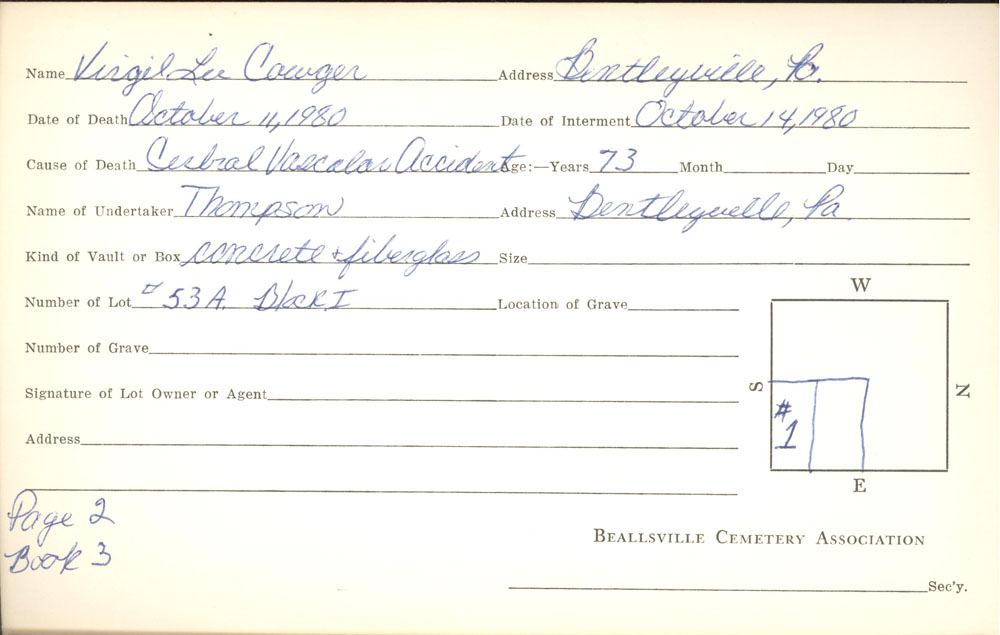 Name Virgil Lee Cowger Address Bentleyville, Pa.
Date of Death October 11, 1980 Date of Interment October 14, 1980
Cause of Death Cerbral Vascular Accident Age:—Years 73 Month Day
Name of Undertaker Thompson Address Bentleyville, Pa.
Kind of Vault or Box concrete + fiberglass Size
Number of Lot # 53A. Block I Location of Grave
Number of Grave
Signature of Lot Owner or Agent
Address
W
S
N
# 1
E
Page 2
Book 3
BEALLSVILLE CEMETERY ASSOCIATION
Sec'y.